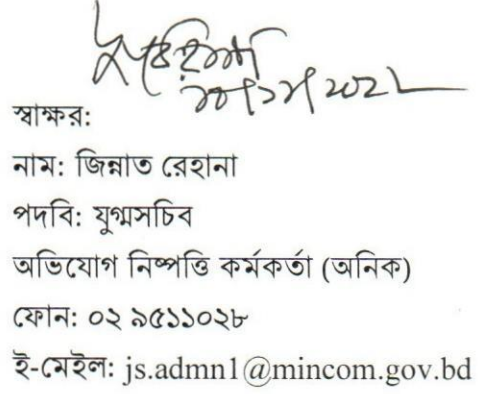 স্বাক্ষর:
নাম: জিন্নাত রেহানা
পদবি: যুগ্মসচিব
অভিযোগ নিষ্পত্তি কর্মকর্তা (অনিক)
ফোন: ০২ ৯৫১১০২৮
ই-মেইল: js.admn1@mincom.gov.bd